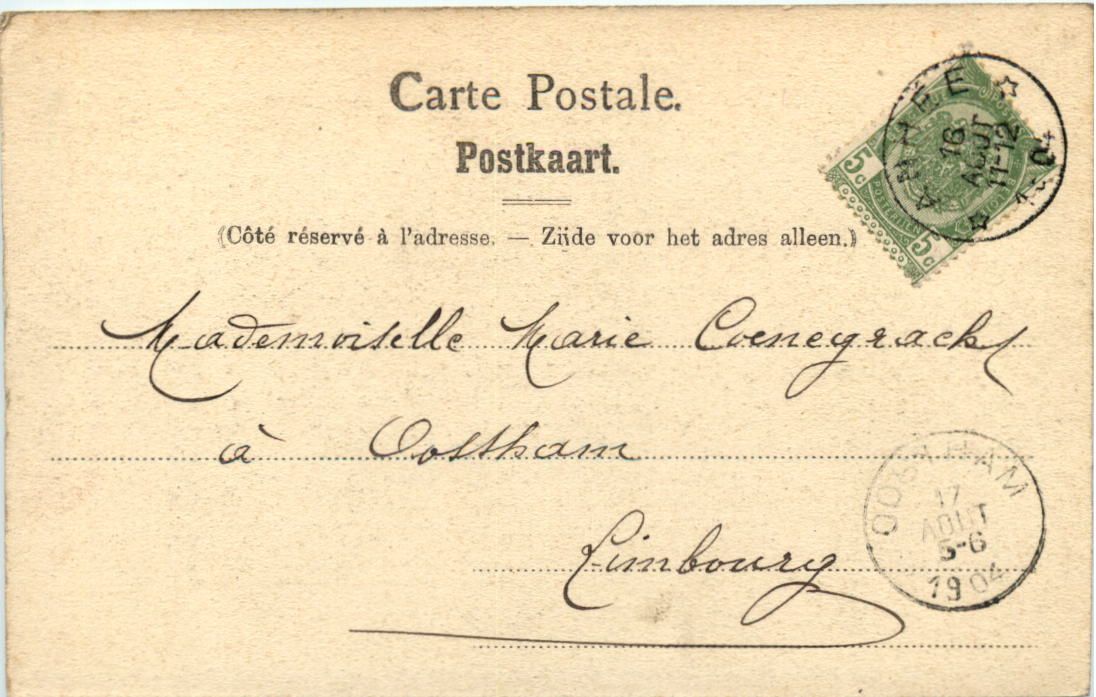 Carte Postale.
Postkaart.
(Côté réservé à l'adresse. — Zijde voor het adres alleen.)
5c 5c
16
AOUT
11-12
Mademoiselle Marie Coenegrachts
à Oostham
Limbourg
OOSTHAM
17
AOUT
5-6
1904